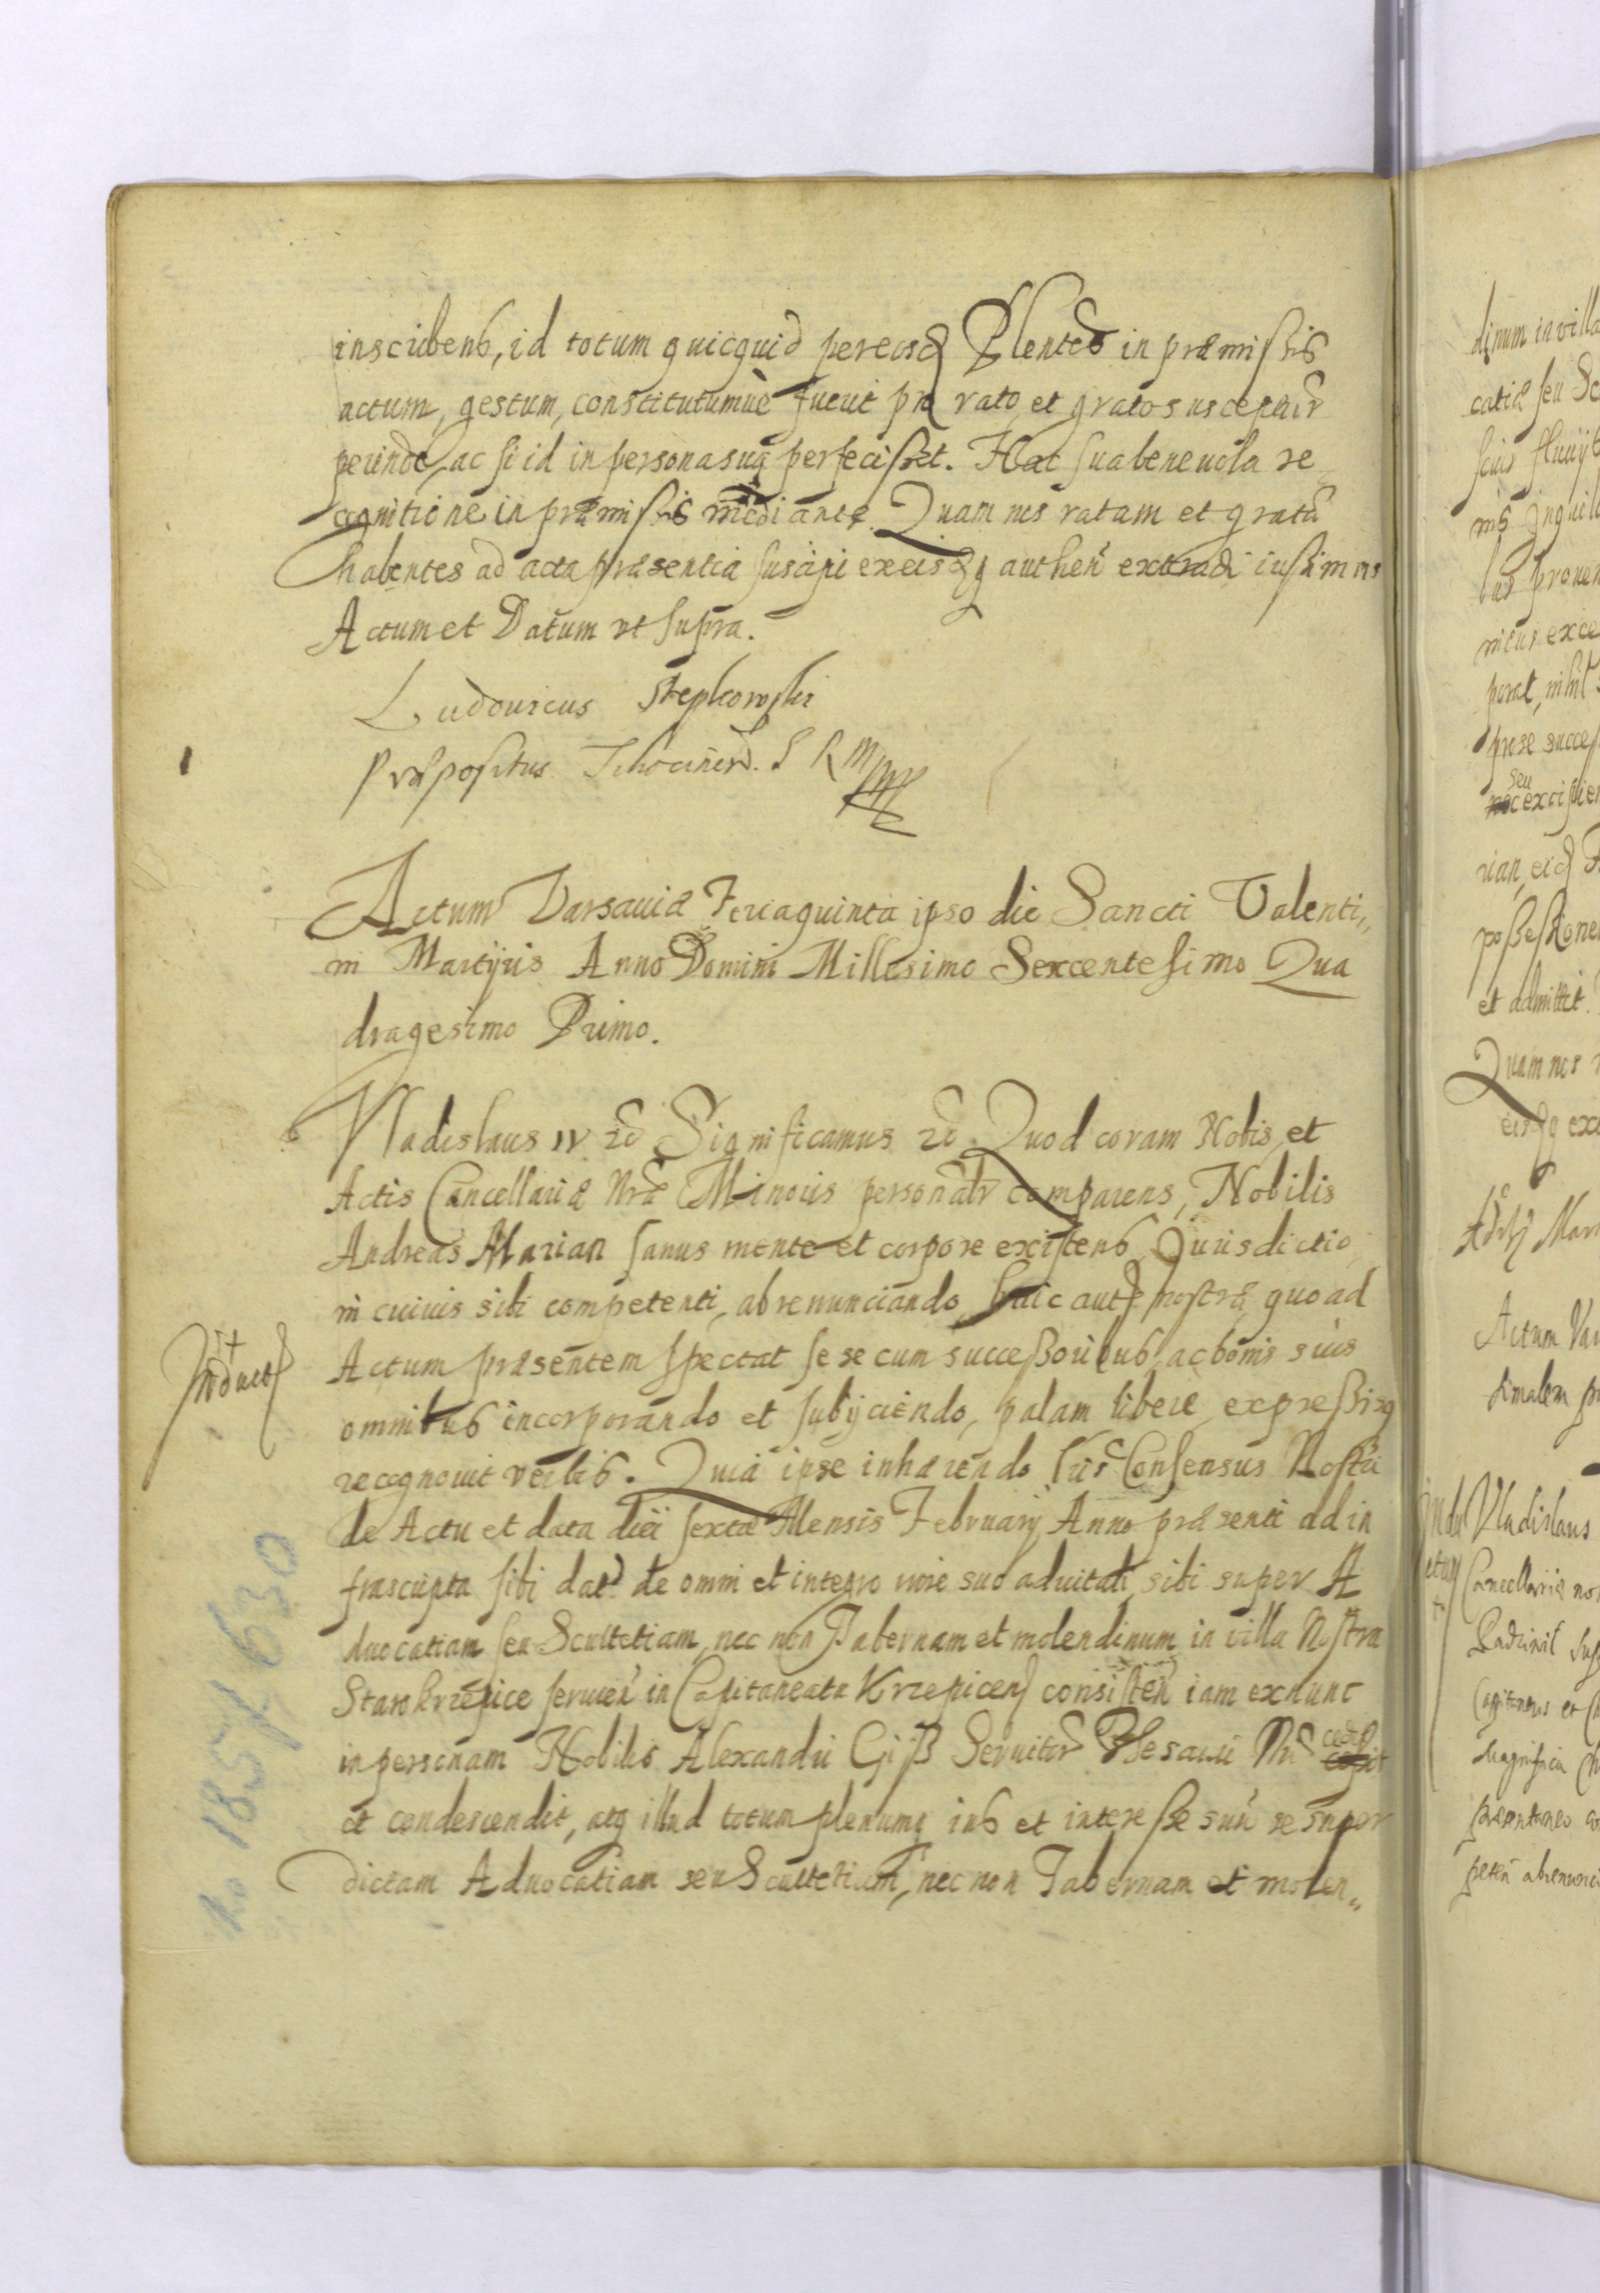 inscribens, id totum quicquid per eosd Plentes in præmissis
actum, gestum, constitutumue fuerit pro rato et grato suscepturŭ
perinde, ac si id in persona sua perfecisset. Hac sua beneuola re
cognitione in præmissis mediante. Quam nos ratam et gratã
habentes ad acta præsentia suscipi ex eisdq authen extradi iussimus
Actum et Datum vt supra.
Ludouicus Stepkowski
Præpositus S R M
Actum Varsauiæ Feria quinta ipso die Sancti Valenti,,
ni Martyris Anno Domini Millesimo Sexcentesimo Qua
dragesimo Primo.
Vladislaus IV etc Significamus etc. Quod coram Nobis et
Actis Cancellariæ Nræ Minoris personalr comparens, Nobilis
Andreas Marian sanus mente et corpore existens Jurisdictio,
ni cuiuis sibi competenti, abrenunciando, huic autẽ nostræ quo ad
Actum præsentem spectat se se cum successoribus ac bonis suis
omnibus incorporando et subijciendo, palam libere expressisq
recognouit verbis. Quia ipse inhærendo Consensus Nostri
de Actu et data diei sextæ Mensis February Anno præsenti ad in
frascripta sibi dat. de omni et integro iure suo aduitali sibi super A
duocatiam seu Scultetiam, nec non Tabernam et molendinum in villa Nostra
Starokrzepice in Capitaneatu Krzepicen consisten iam ex nunc
in personam Nobilis Alexandri Giß Seruitor Thesauri Nri cedit
et condescendit, atq illud totum plenumq ius et interesse suũ se super
dictam Aduocatiam seu Scultetiam, nec non Tabernam et molen,,
Inductũ
No 185 f. 630
dinum in villa
catiæ seu Sc
fluuij
et admittit.
Quam nos
Actum Var
Vladislaus
Cancellariæ
Capitaneus et